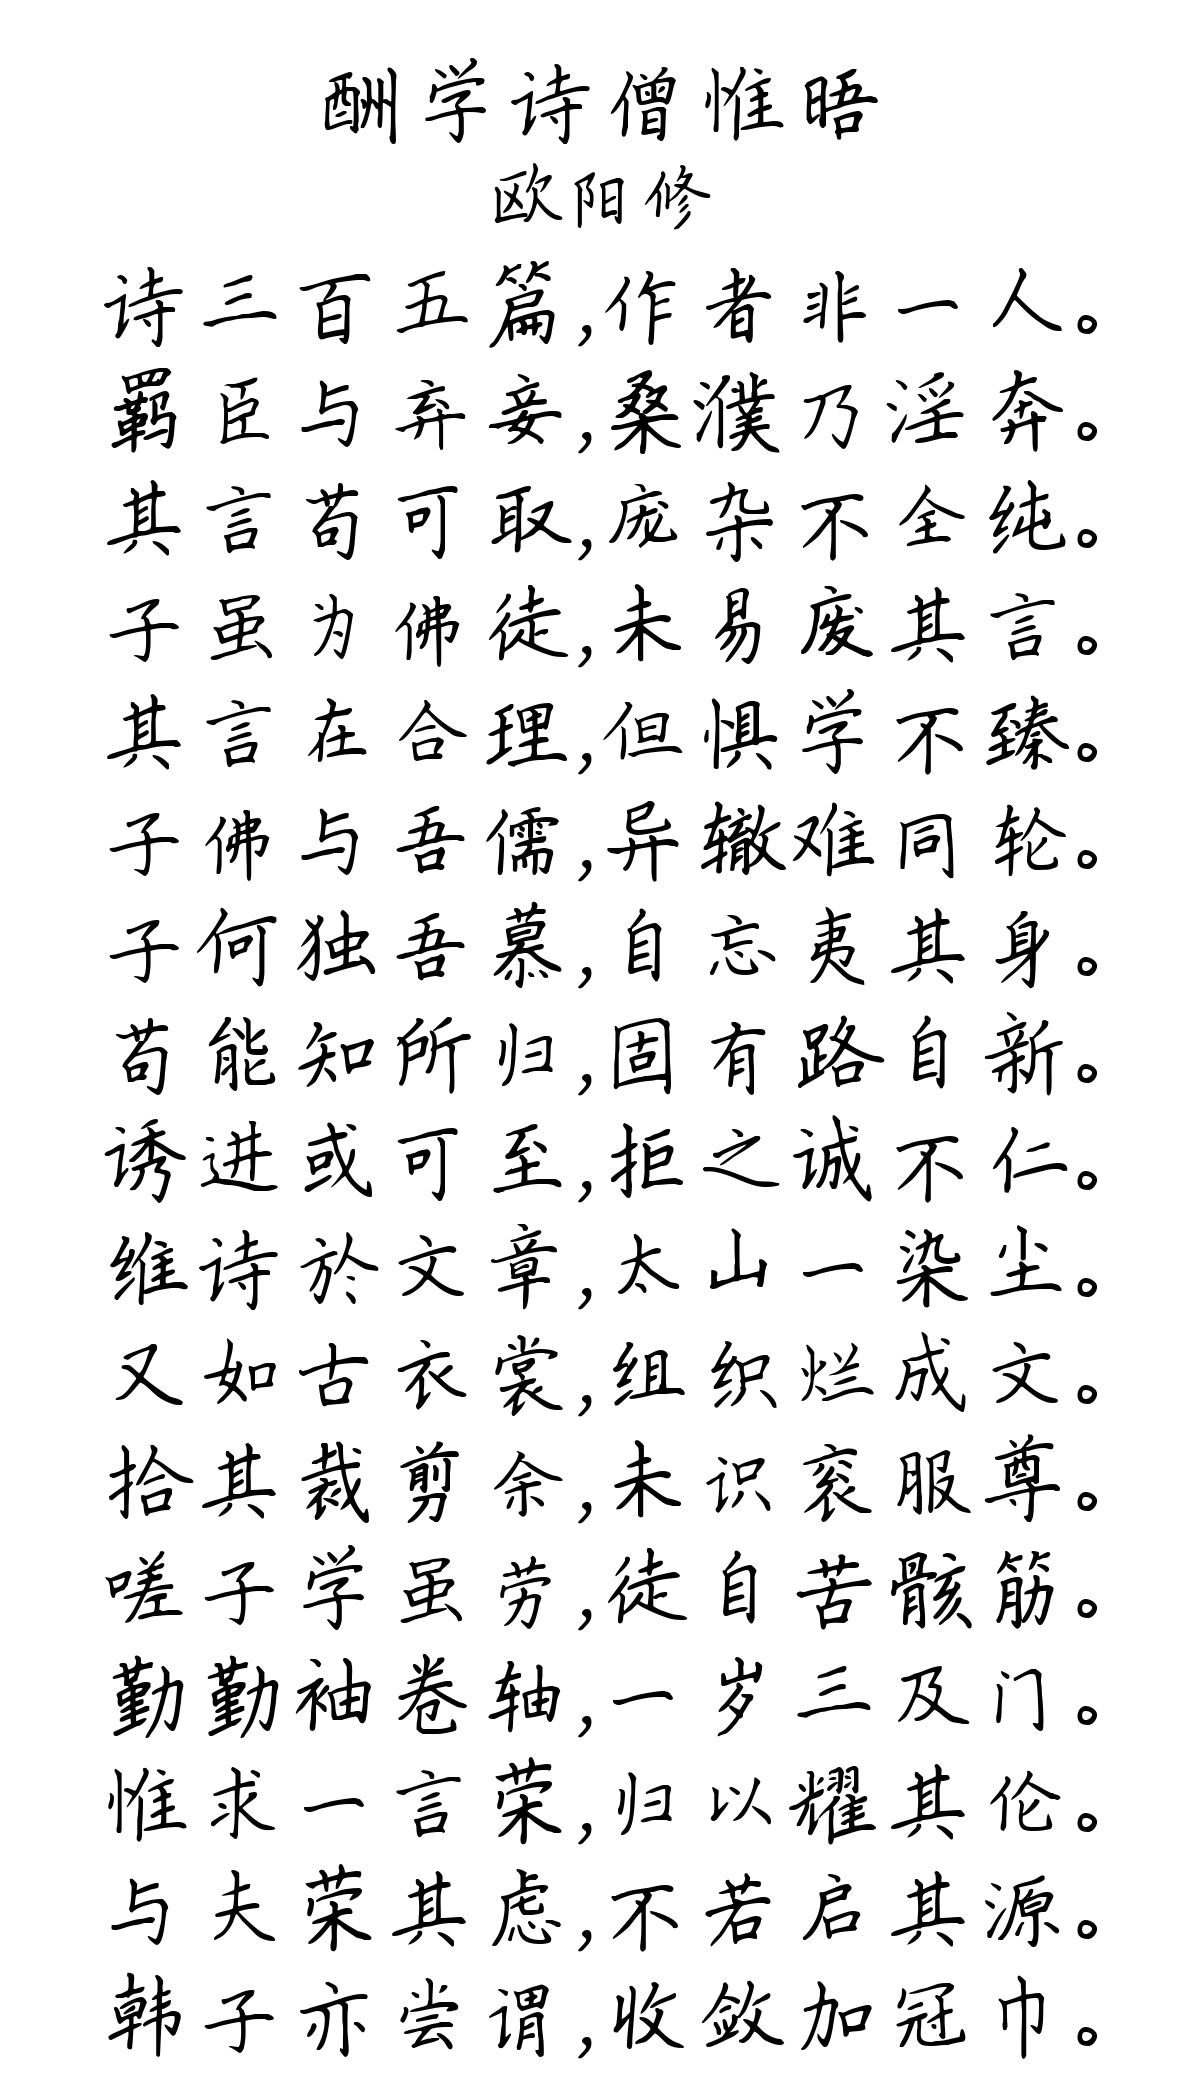 酬学诗僧惟晤
欧阳修
诗三百五篇,作者非一人。
羁臣与弃妾,桑濮乃淫奔。
其言苟可取,庞杂不全纯。
子虽为佛徒,未易废其言。
其言在合理,但惧学不臻。
子佛与吾儒,异辙难同轮。
子何独吾慕,自忘夷其身。
苟能知所归,固有路自新。
诱进或可至,拒之诚不仁。
维诗於文章,太山一染尘。
又如古衣裳,组织烂成文。
拾其裁剪余,未识衮服尊。
嗟子学虽劳,徒自苦骸筋。
勤勤袖卷轴,一岁三及门。
惟求一言荣,归以耀其伦。
与夫荣其虑,不若启其源。
韩子亦尝谓,收敛加冠巾。